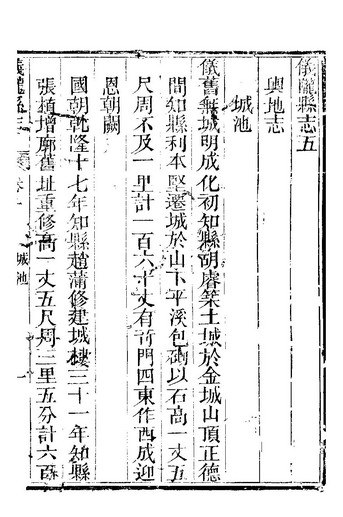 儀隴縣志五
輿地志
城池
儀舊無城明成化初知縣胡睿築土城於金城山頂正德
間知縣利本堅遷城於山下平溪包砌以石高一丈五
尺周不及一里計一百六十丈有奇門四東作西成迎
恩朝闕
國朝乾隆十七年知縣趙蒲修建城樓三十一年知縣
張植增廓舊址重修高一丈五尺周三里五分計六百
儀隴縣志
卷一
城池
一